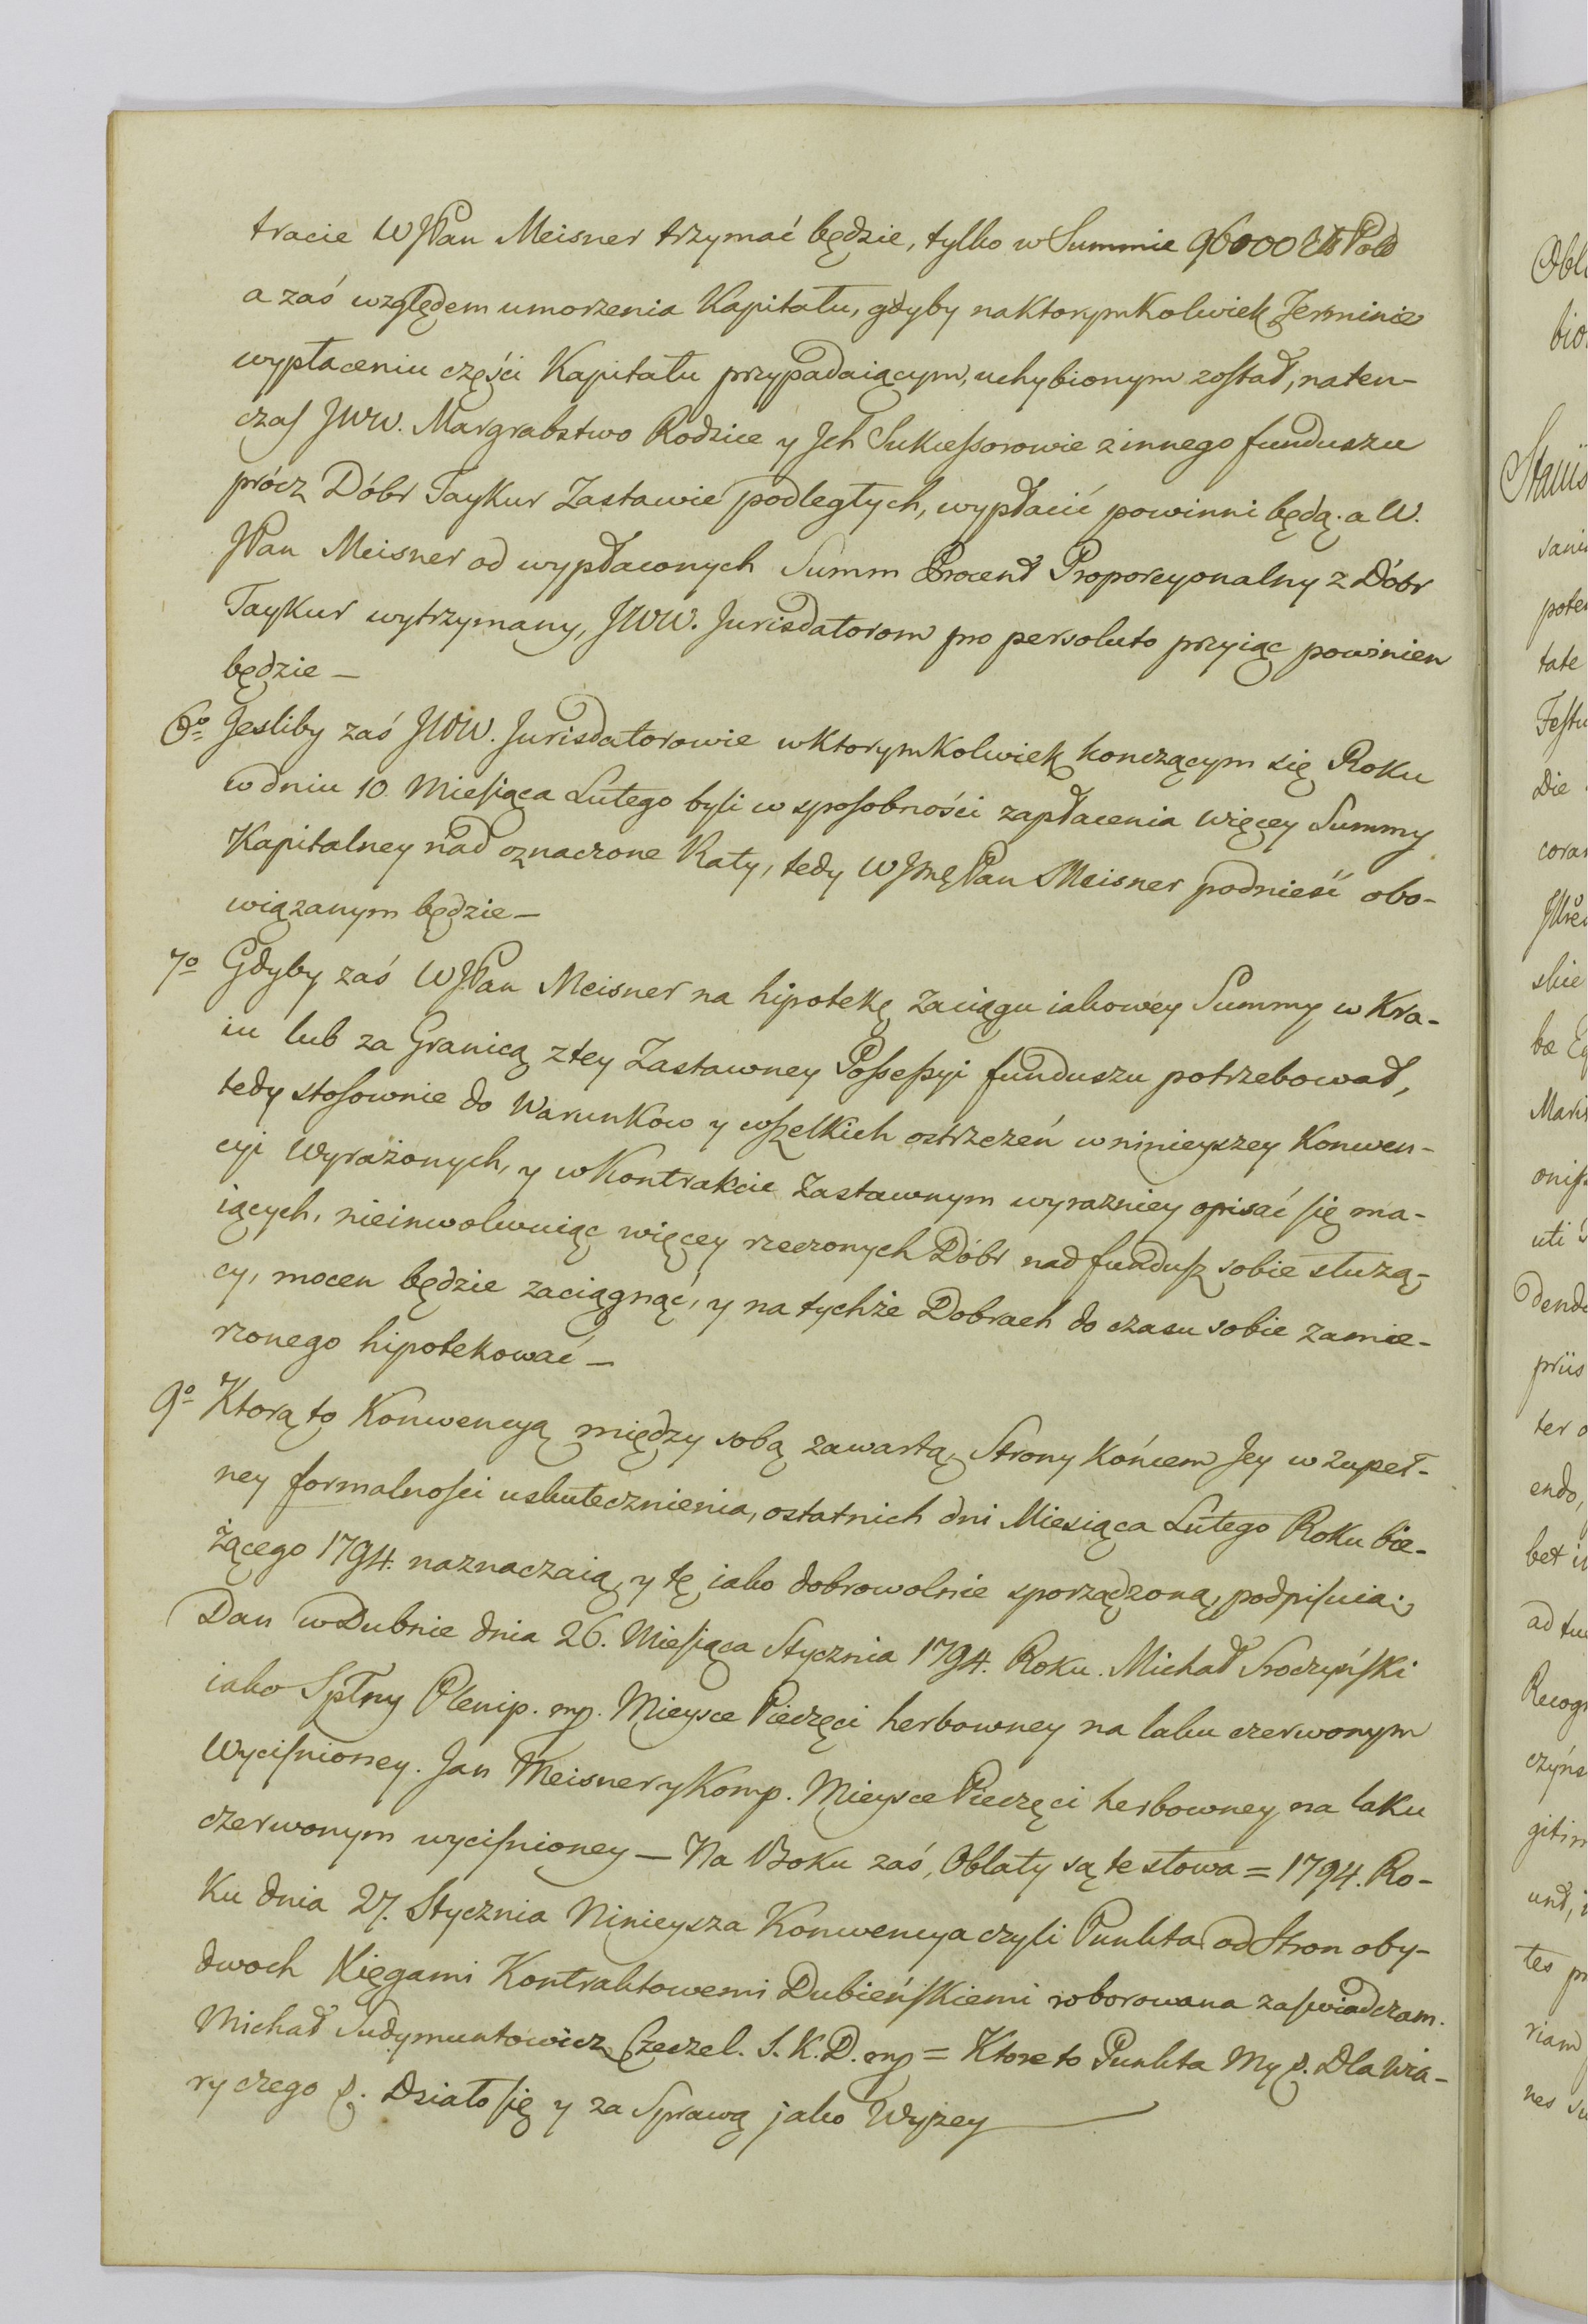 tracie WJPan Meisner trzymać będzie, tylko w Summie 96000 Złł Pold
a zaś względem umorzenia Kapitału, gdyby naktorymkolwiek Terminie
wypłaceniu części Kapitału przypadaiącym, uchybionym został, naten-
czas JWW. Margrabstwo Rodzice y Jch Sukcessorowie z innego funduszu
prócz Dóbr Taykur Zastawie podległych, wypłacić powinni będą. a W.
JPan Meisner od wypłaconych Summ Procent Proporcyonalny z Dóbr
Taykur wytrzymany, JWW. Jurisdatorom pro persoluto przyiąc powinien
będzie —
6º Jesliby zaś JWW. Jurisdatorowie wktorymkolwiek konczącym się Roku
w dniu 10. Miesiąca Lutego byli w sposobności zapłacenia więcey Summy
Kapitalney nad oznaczone Raty, tedy WJmę Pan Meisner podnieść obo-
wiązanym będzie —
7º Gdyby zaś WJPan Meisner na hipotekę zaciągu iakowey Summy w Kra-
iu lub za Granicą z tey Zastawney Possessyi funduszu potrzebował,
tedy stosownie do Warunków y wszelkich ostrzczeń w ninieyszey Konwen-
cyi Wyrażonych, y w Kontrakcie Zastawnym wyrazniey opisać się ma-
iących, nieinwolwuiąc więcey rzeczonych Dóbr nad fundusz sobie służą-
cy, mocen będzie zaciągnąć, y na tychże Dobrach do czasu sobie zamie-
rzonego hipotekować —
9º Ktorą to Konwencyą między sobą zawartą, Strony Końcem Jey w zupeł-
ney formalności uskutecznienia, ostatnich dni Miesiąca Lutego Roku bie-
żącego 1794. naznaczaią, y tę iako dobrowolnie sporządzoną, podpisuią.
Dan w Dubnie dnia 26. Miesiąca Stycznia 1794. Roku. Michał Sroczyński
iako Spłny Plenip. mp. Mieysce Pieczęci herbowney na laku czerwonym
Wyciśnioney. Jan Meisner y Komp. Mieysce Pieczęci herbowney na laku
czerwonym wyciśnioney — Na Boku zaś, Oblaty są te słowa = 1794. Ro-
ku dnia 27. Stycznia Ninieysza Konwencya czyli Punkta od Stron oby-
dwoch Xięgami Kontraktowemi Dubieńskiemi roborowana zaswiadczam.
Michał Sudymuntowicz Czeczel. S. K. D. mp = Ktore to Punkta My p. Dla Wia-
ry czego p. Działo się y za Sprawą jako Wyżey